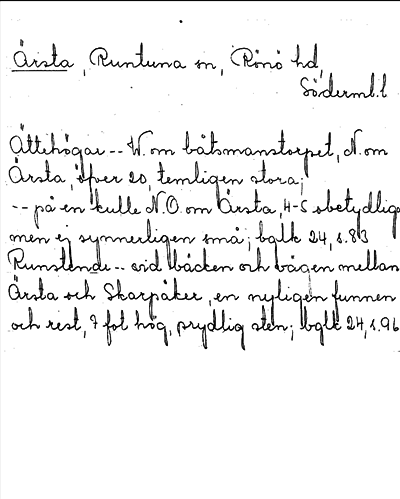 Ärsta, Runtuna sn, Rönö hd,
Söderml. l
Ättehögar -- W. om båtsmanstorpet, N. om
Ärsta, öfver 20, temligen stora;
-- på en kulle N.O. om Ärsta, 4-5 obetydliga
men ej synnerligen små; bglk 24, s. 83
Runstende -- vid bäcken och vägen mellan
Ärsta och Skarpåker, en nyligen funnen
och rest, 7 fot hög, prydlig sten; bglk 24, s. 96